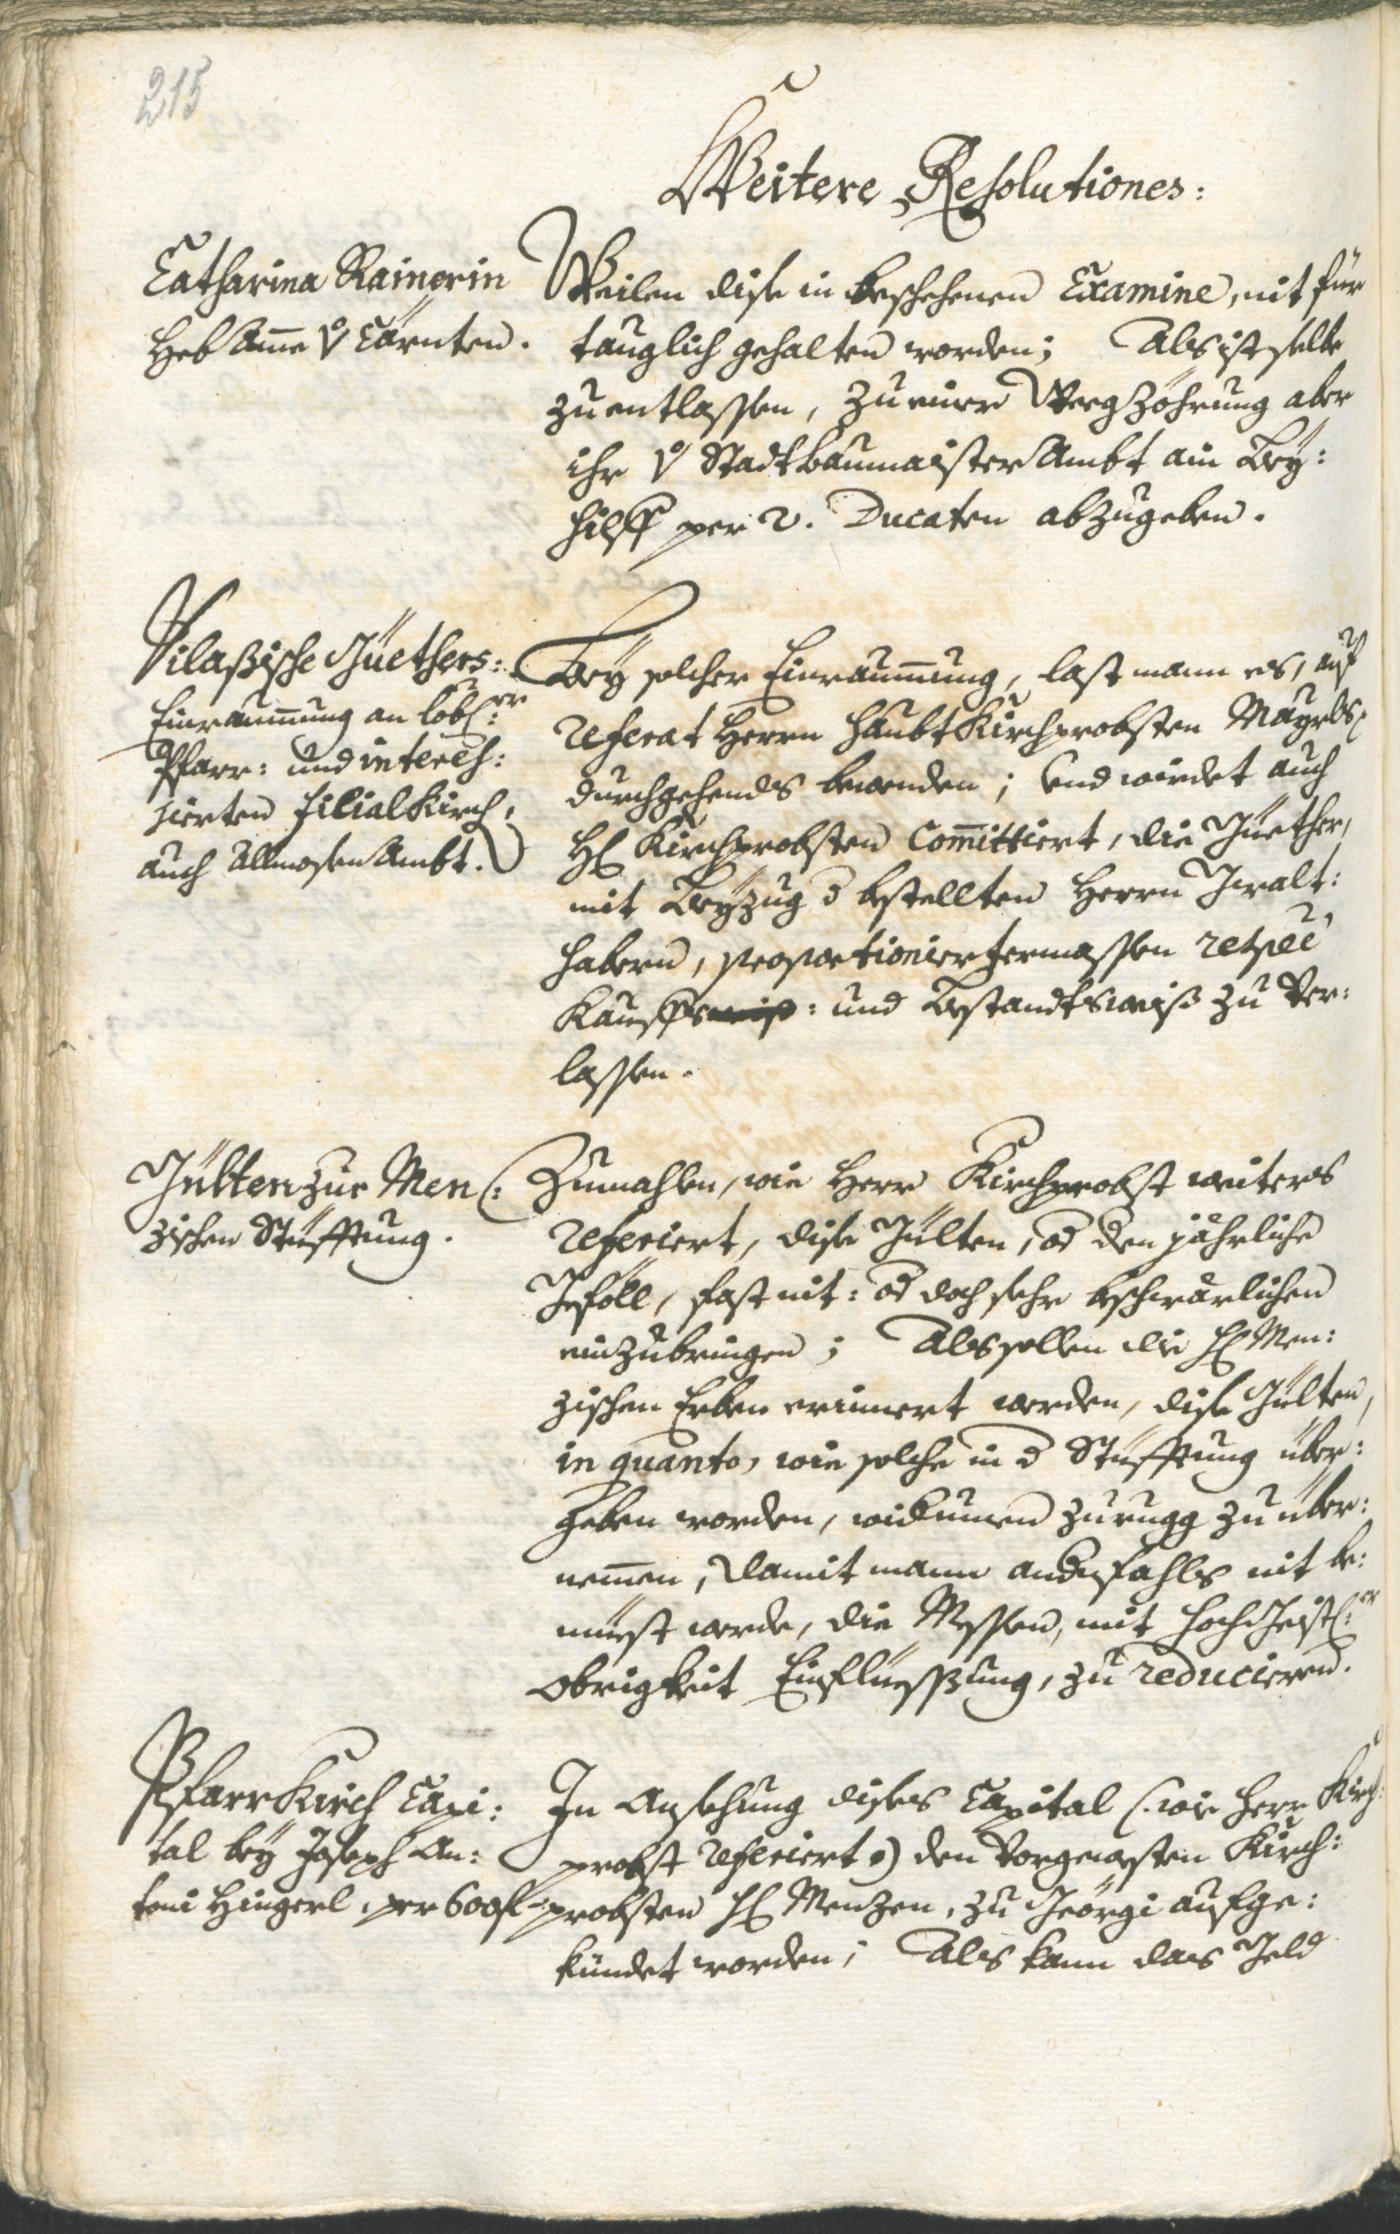 215
Weitere Resolutiones:
Catharina Rainerin
Heb Ame v Cärnten.
Weilen dise in beschehenen Examine, nit für
tauglich gehalten worden; Als ist selbe
zu entlassen, zu einer Weeg Zöhrung aber
ihr v Stadtbaumaister Ambt ain Bey:
hilff per 2. Ducaten abzugeben.
Vilaßische Güethers:
Einraumung an lobl:er
Pfarr: und interes:
sierten filialkirch,
auch Allmosen Ambt.
Bey solcher Einraumung, last mann es, auf
referat Herrn HaubtKirchprobsten Mayrls,
durchgehends bewenden; und wirdet auch
H: Kirchprobsten Committiert, die Güether,
mit Beyzug d bestellten Herrn Gwalt:
habern, proportioniertermassen respec
Kauffsweiß: und Bestandtsweiß zu Ver:
lassen.
Gülten zur Men:
zischen Stüfftung.
Zumahlen, wie Herr Kirchprobst weiters
referiert, dise Gülten, od den jährliche
Gföll, fast nit: od doch sehr beschwärlichen
einzubringen; Als sollen die H: Men:
zischen Erben erinnert werden, dise Gülten,
in quanto, wie solche in d Stüfftung über:
geben worden, widerumen zurugg zu über:
nemen, damit mann andfahls nit be:
müest werde, die Messen, mit Hoch Geistl:er
Obrigkeit Einflüessung, zu reducieren.
Pfarrkirch Capi:
tal bey Joseph An:
toni Hingerl, per 600 fl
In Ansehung dises Capital (wie Herr Kirch:
probst referiert:) den Vorgewesten Kirch:
probsten H: Menzen, zu Geörgi aufge:
kündet worden; Als kann das Geld